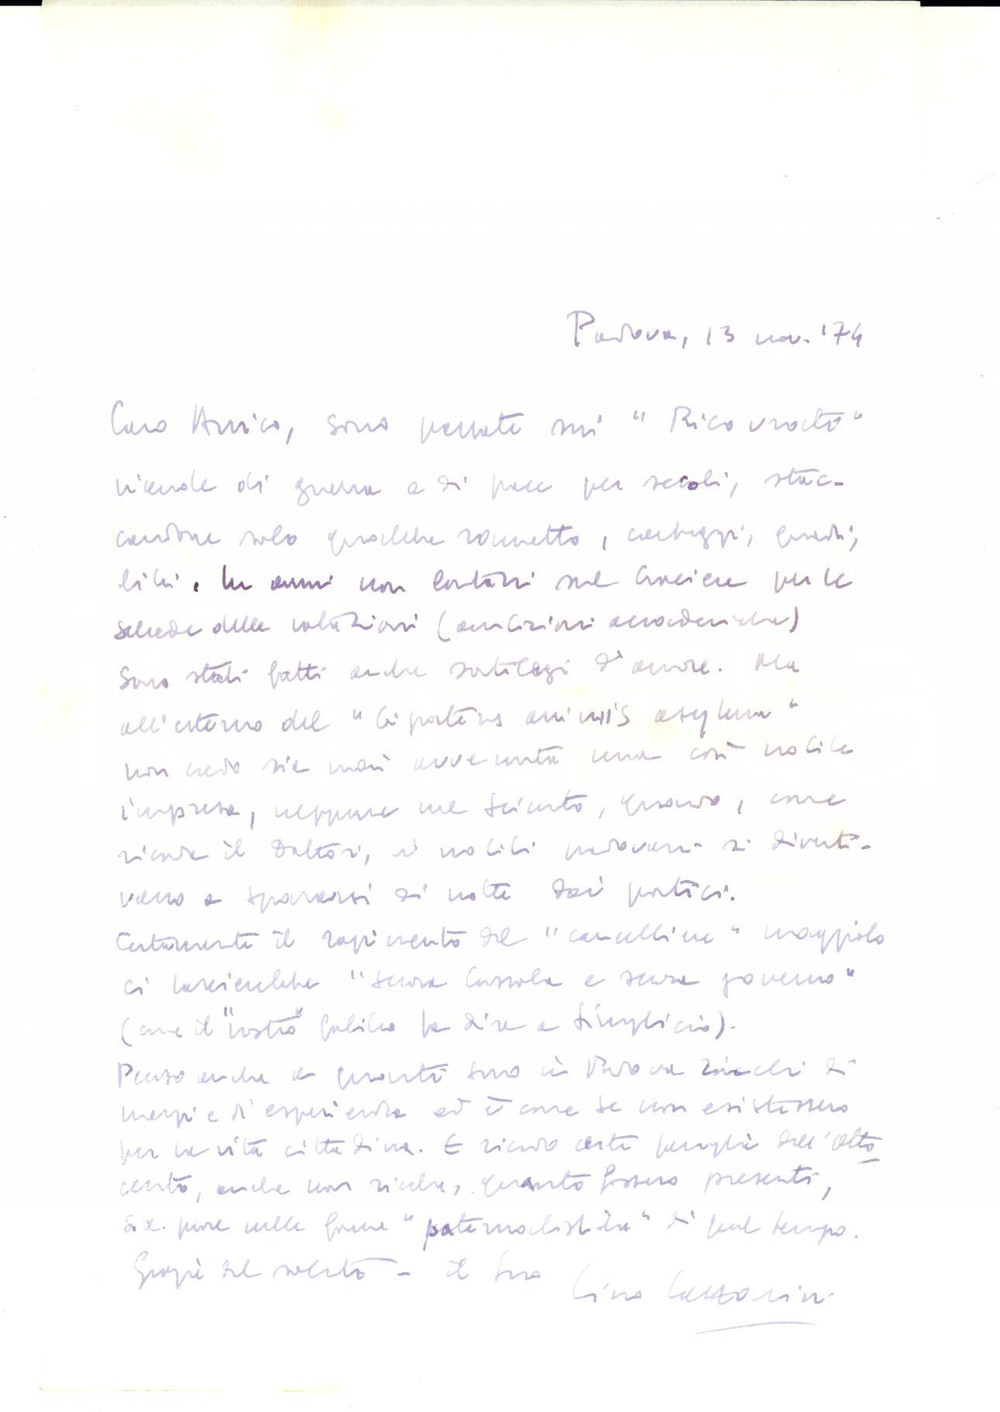 Padova, 13 nov. '74
Caro Amico, sono passate sui "Ricovrati"
vicende di guerra e di pace per secoli, stac-
candone solo qualche rametto, carteggi, quadri,
libri. In anni non lontani sul braciere per le
schede delle votazioni (ambizioni accademiche)
sono stati fatti anche sortilegi d'amore. Ma
all'interno del "bipatens animis asylum"
non credo sia mai avvenuta una così nobile
impresa, neppure nel Seicento, quando, come
ricorda il, i nobili padovani si diverti-
vano a spararsi di notte dai portici.
Certamente il rapimento del "cancelliere" Maggiolo
ci lascerebbe "senza bussola e senza governo"
(come il "nostro" Galileo fa dire a Simplicio).
Penso anche a quanti sono in Padova ricchi di
mezzi e di esperienza ed è come se non esistessero
per la vita cittadina. E ricordo certe famiglie dell'otto
cento, anche non ricche, quanto fossero presenti,
sia pure nelle forme "paternalistiche" di quel tempo.
Grazie del saluto - il Suo